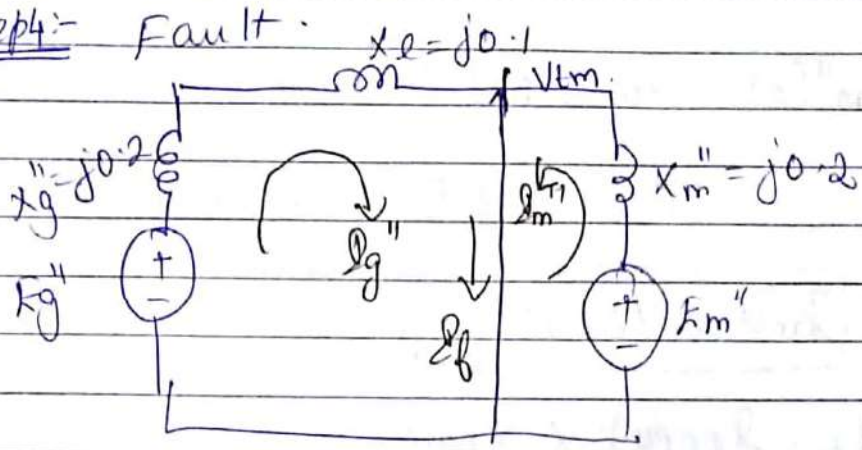 ep4:- Fault.
Xl = j0.1
Vtm.
Xg" = j0.2
Xm" = j0.2
Ig"
Im"
Eg"
Em"
If